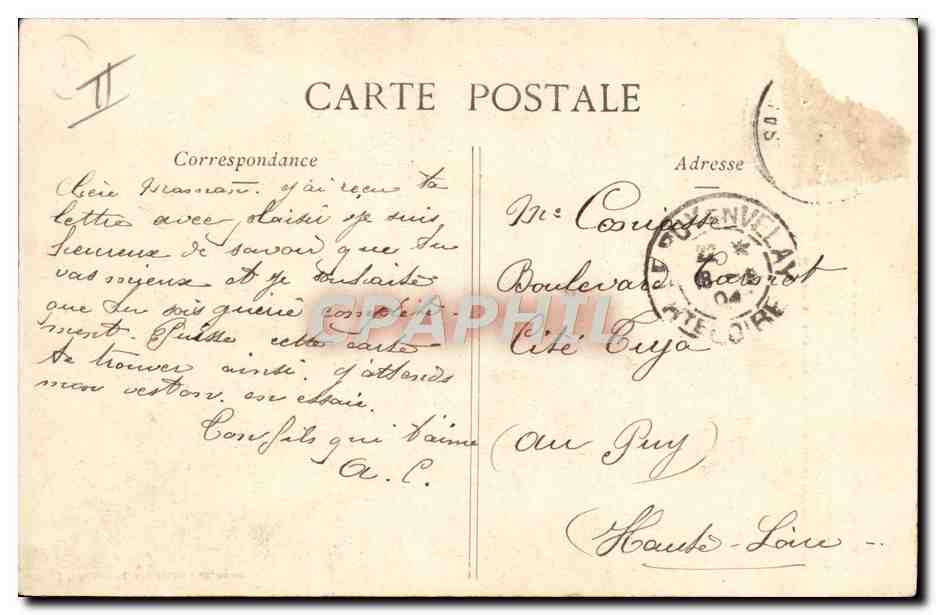 II
CARTE POSTALE
Correspondance
Adresse
Chère Maman. j'ai reçu ta
lettre avec plaisir je suis
heureux de savoir que tu
vas mieux et je souhaite
que tu sois guérie complète-
ment. Puisse cette carte
te trouver ainsi. j'attends
mon veston en essai.
Ton fils qui t'aime
A. C.
Me Coniasse
Boulevard Carnot
Cité Tuja
(au Puy)
(Haute-Loire)
LE PUY-EN-VELAY
HTE LOIRE
CPAPHIL